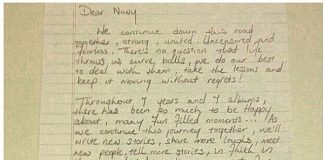 Dear Navy
We continue down this road
together, strong, united. Uncensored and
fearless. There's no question that life
throws us curve balls, we do our best
to deal with them, take the lessons and
keep it moving without regrets!
Throughout 7 years and 7 albums,
there has been so much to be happy
about, many fun filled moments... As
we continue this journey together, we'll
write new stories, share more laughs, meet
new people, tell more stories, in faith in